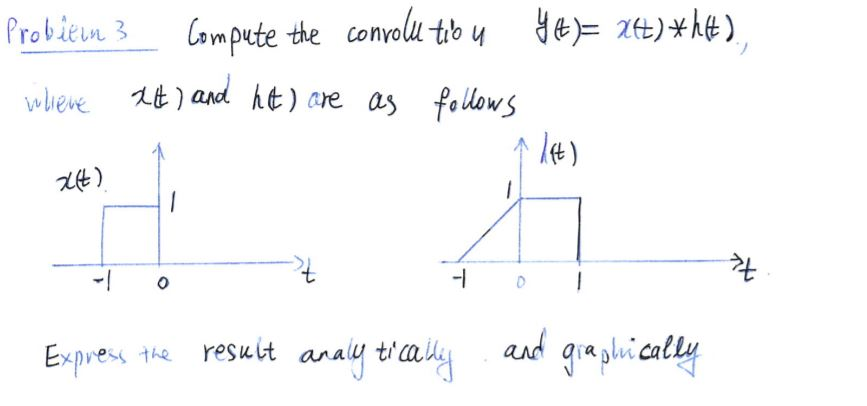 Problem 3 Compute the convolution y(t)= x(t)*h(t),
where x(t) and h(t) are as follows
x(t) 1 -1 0 t
h(t) 1 -1 0 1 t
Express the result analytically and graphically